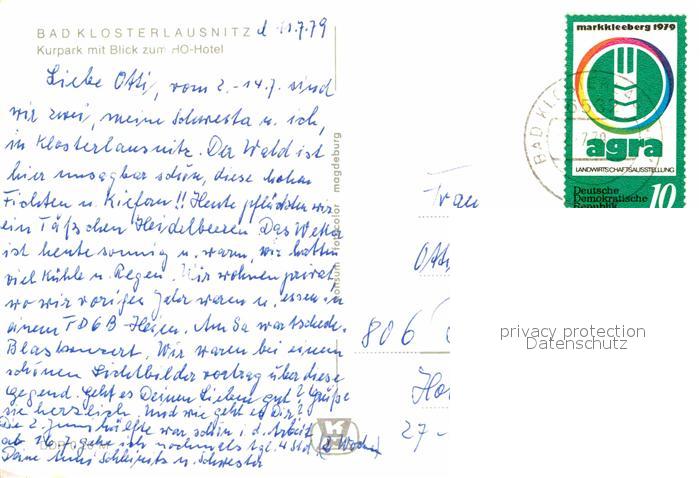 BAD KLOSTERLAUSNITZ d. 11.7.79
Kurpark mit Blick zum HO-Hotel
Liebe Otti, vom 2.-14.7. sind
wir zwei, meine Schwester u. ich,
in Klosterlausnitz. Der Wald ist
hier unsagbar schön, diese hohen
Fichten u. Kiefern!! Heute pflückten wir
ein Täßchen Heidelbeeren Das Wetter
ist heute sonnig u. warm, wir hatten
viel Kühle u. Regen. Wir wohnen privat,
wo wir voriges Jahr waren u. essen in
einem FDGB-Heim. Am Sa war
Blaskonzert, Wir waren bei einem
schönen Lichtbildervortrag über diese
Gegend. Geht es Deinen Lieben gut? Grüße
sie herzlich. Und wie geht es Dir?
Die 2. Junihälfte war schön i. d. Arbeit
ab 16.7. gehe ich nochmals tgl. 4 Std (2 Wochen)
Deine u. Schwester
fotocolor magdeburg
Frau
Otti
806
27-
markkleeberg 1979
agra
LANDWIRTSCHAFTSAUSSTELLUNG
Deutsche
Demokratische
Republik 10
BAD KLO
privacy protection
Datenschutz